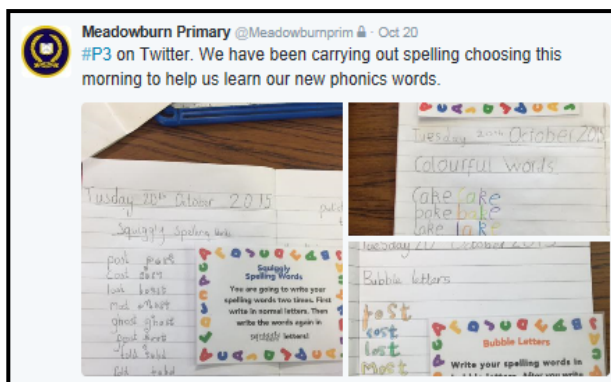 Meadowburn Primary @Meadowburnprim · Oct 20
#P3 on Twitter. We have been carrying out spelling choosing this
morning to help us learn our new phonics words.
Tusday 20th October 2015
Squiggly Speling Words
post post
cost cost
lost lost
most most
ghost ghost
told told
Squiggly
Spelling Words
You are going to write your
spelling words two times. First
write in normal letters. Then
write the words again in
squiggly letters!
Tuesday 20th October 2015
Colourful words
Cake Cake
bake bake
lake lake
Tuesday 20 October 2015
Bubble letters
post
cost
lost
Most
Bubble Letters
Write your spelling words in